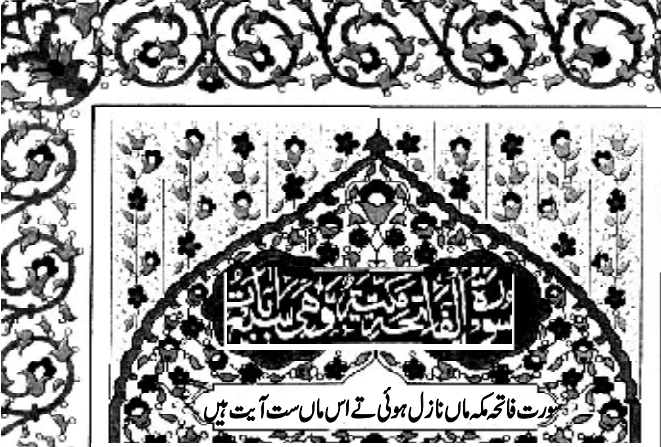 سورة الفاتحة مكية وهى سبع آيات
سورت فاتحہ مکہ ماں نازل ہوئی تے اس ماں ست آیت ہیں